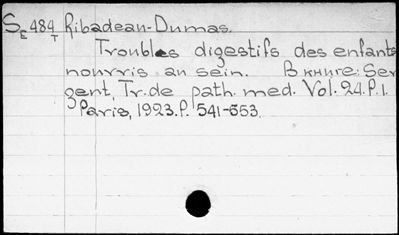 SE 484 T Ribadeau-Dumas.
Troubles digestifs des enfants
nourris au sein. В книге: Ser
gent, Tr. de path. med. Vol. 24. P. 1.
Paris, 1923. P. 541-553.